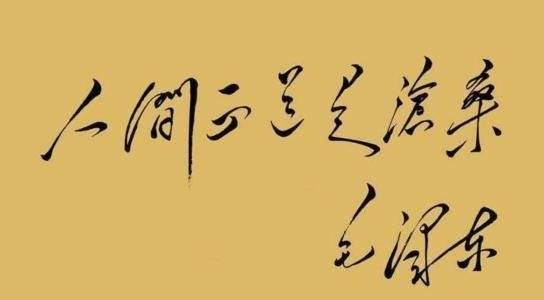 人间正道是滄桑
毛澤东